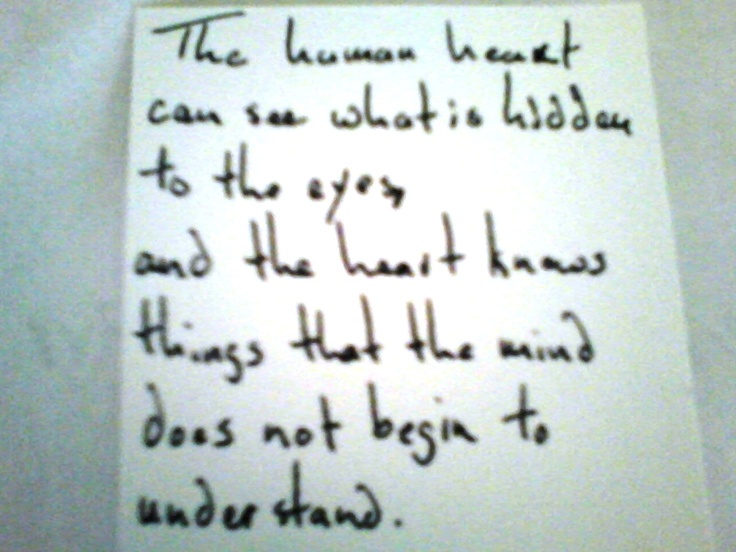 The human heart
can see what is hidden
to the eyes,
and the heart knows
things that the mind
does not begin to
understand.